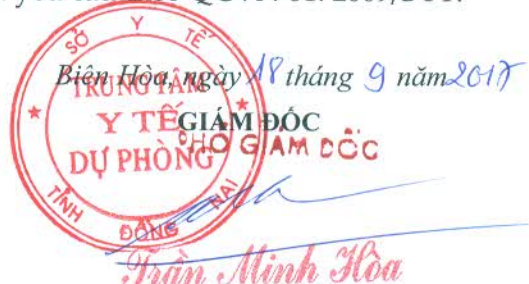 Biên Hòa, ngày 18 tháng 9 năm 2017
GIÁM ĐỐC
PHÓ GIÁM ĐỐC
SỞ Y TẾ
TRUNG TÂM
Y TẾ
DỰ PHÒNG
TỈNH ĐỒNG NAI
Trần Minh Hòa